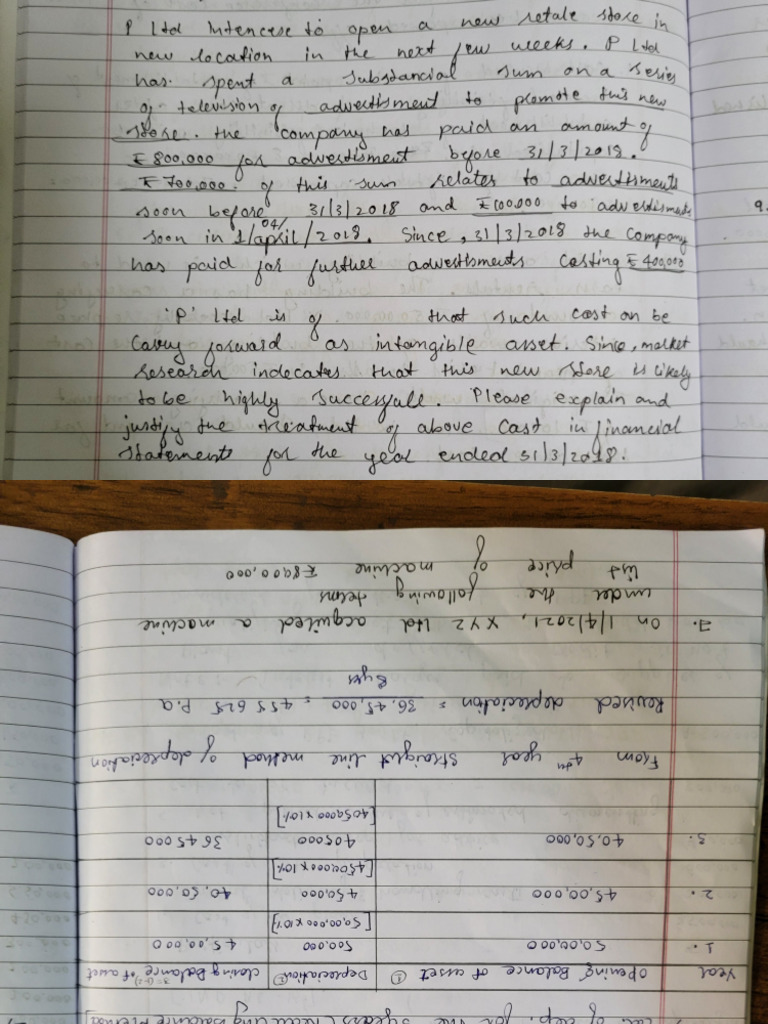 P Ltd Intencese to open a new retale store in
new location in the next few weeks. P Ltd
has spent a substancial sum on a series
of television of advertisment to promote this new
store. the company has paid an amount of
₹800,000 for advertisment before 31/3/2018.
₹700,000. of this sum relates to advertisments
soon before 31/3/2018 and ₹100,000 to advertisments
soon in 1/april/2018. Since, 31/3/2018 the company
04/
has paid for further advertisments costing ₹400,000
'P' Ltd is of that such cost on be
Carry forward as intangible asset. Since, market
research indecates that this new store is likely
to be highly successfull. Please explain and
justify the treatment of above cast in financial
statements for the year ended 31/3/2018.
9.
cal. of dep. for the 3 years [reducing balance method]
Year opening Balance of asset ① Depreciation ② closing Balance of asset 3=(1-2)
1. 50,00,000 500,000 45,00,000
[50,00,000x10%]
2. 45,00,000 450,000 40,50,000
[4500,000x10%]
3. 40,50,000 405000 3645000
[4050000x10%]
From 4th year straight line method of depreciation
Revised depreciation = 36,45,000 = 455 625 P.a
8 yrs
7. On 1/4/2021, XYZ Ltd acquited a machine
under the following terms
list price of machine ₹8900,000
of